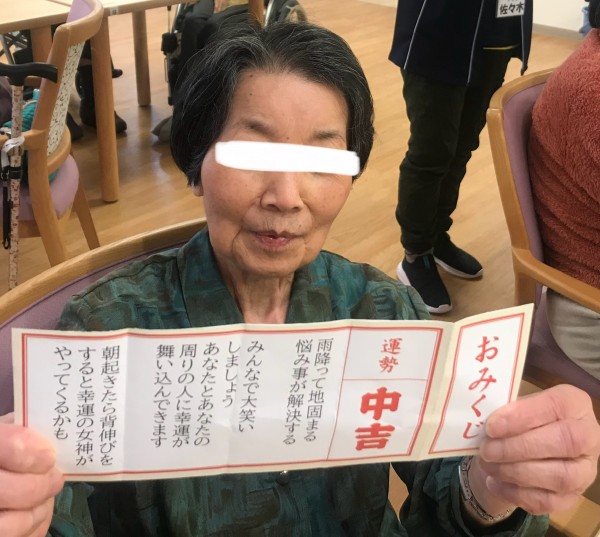 おみくじ
運勢
中吉
雨降って地固まる
悩み事が解決する
みんなで大笑い
しましょう
あなたとあなたの
周りの人に幸運が
舞い込んできます
朝起きたら背伸びを
すると幸運の女神が
やってくるかも
佐々木